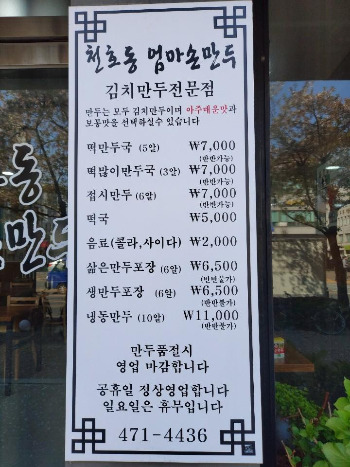 천호동 엄마손만두
김치만두전문점
만두는 모두 김치만두이며 아주매운맛과
보통맛을 선택하실수 있습니다
떡만두국 (5알) ₩7,000
(반반가능)
떡많이만두국 (3알) ₩7,000
(반반가능)
접시만두 (6알) ₩7,000
(반반가능)
떡국 ₩5,000
음료(콜라,사이다) ₩2,000
삶은만두포장 (6알) ₩6,500
(반반불가)
생만두포장 (6알) ₩6,500
(반반불가)
냉동만두 (10알) ₩11,000
(반반불가)
만두품전시
영업 마감합니다
공휴일 정상영업합니다
일요일은 휴무입니다
471-4436
동
만두